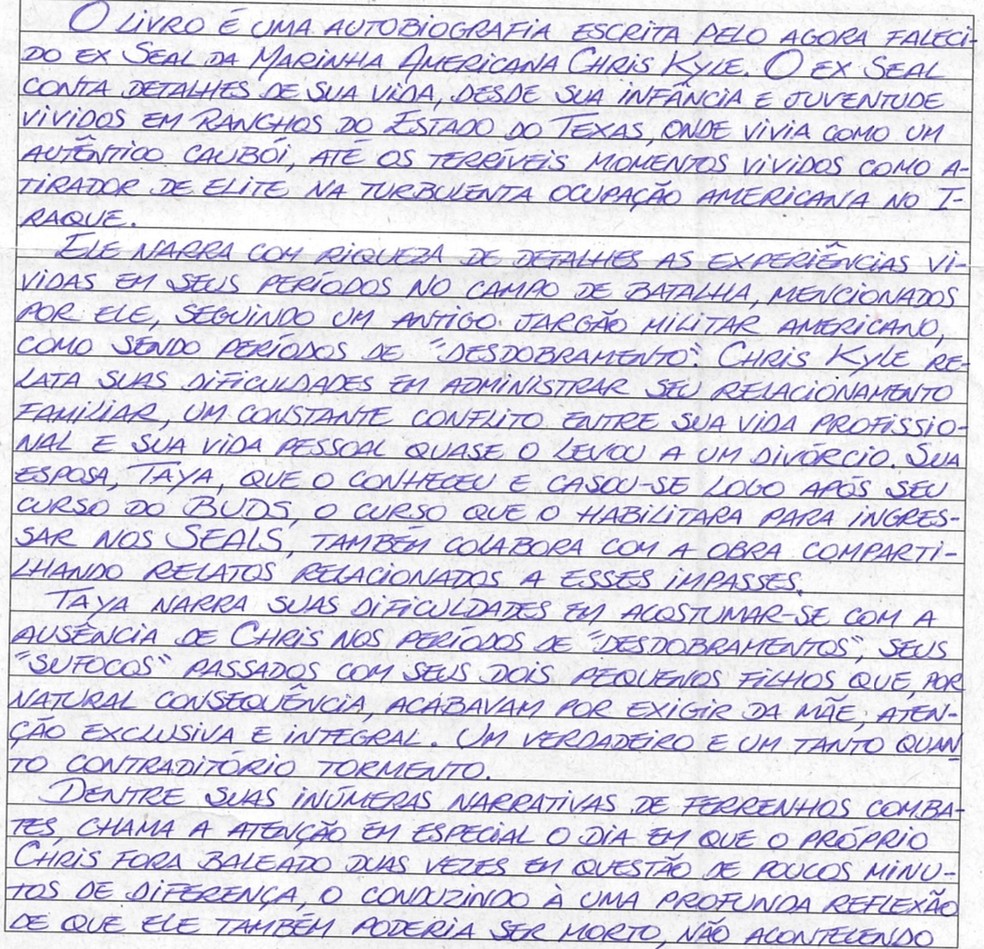 O LIVRO É UMA AUTOBIOGRAFIA ESCRITA PELO AGORA FALECI-
DO EX SEAL DA MARINHA AMERICANA CHRIS KYLE. O EX SEAL
CONTA DETALHES DE SUA VIDA, DESDE SUA INFÂNCIA E JUVENTUDE
VIVIDOS EM RANCHOS DO ESTADO DO TEXAS, ONDE VIVIA COMO UM
AUTÊNTICO CAUBÓI, ATÉ OS TERRÍVEIS MOMENTOS VIVIDOS COMO A-
TIRADOR DE ELITE NA TURBULENTA OCUPAÇÃO AMERICANA NO I-
RAQUE.
ELE NARRA COM RIQUEZA DE DETALHES AS EXPERIÊNCIAS VI-
VIDAS EM SEUS PERÍODOS NO CAMPO DE BATALHA, MENCIONADOS
POR ELE, SEGUINDO UM ANTIGO JARGÃO MILITAR AMERICANO,
COMO SENDO PERÍODOS DE "DESDOBRAMENTO". CHRIS KYLE RE-
LATA SUAS DIFICULDADES EM ADMINISTRAR SEU RELACIONAMENTO
FAMILIAR, UM CONSTANTE CONFLITO ENTRE SUA VIDA PROFISSIO-
NAL E SUA VIDA PESSOAL QUASE O LEVOU A UM DIVÓRCIO. SUA
ESPOSA, TAYA, QUE O CONHECEU E CASOU-SE LOGO APÓS SEU
CURSO DO BUDS, O CURSO QUE O HABILITARA PARA INGRES-
SAR NOS SEALS, TAMBÉM COLABORA COM A OBRA COMPARTI-
LHANDO RELATOS RELACIONADOS A ESSES IMPASSES.
TAYA NARRA SUAS DIFICULDADES EM ACOSTUMAR-SE COM A
AUSÊNCIA DE CHRIS NOS PERÍODOS DE "DESDOBRAMENTOS", SEUS
"SUFOCOS" PASSADOS COM SEUS DOIS PEQUENOS FILHOS QUE, POR
NATURAL CONSEQUÊNCIA, ACABAVAM POR EXIGIR DA MÃE, ATEN-
ÇÃO EXCLUSIVA E INTEGRAL. UM VERDADEIRO E UM TANTO QUAN
TO CONTRADITÓRIO TORMENTO.
DENTRE SUAS INÚMERAS NARRATIVAS DE FERRENHOS COMBA-
TES, CHAMA A ATENÇÃO EM ESPECIAL O DIA EM QUE O PRÓPRIO
CHRIS FORA BALEADO DUAS VEZES EM QUESTÃO DE POUCOS MINU-
TOS DE DIFERENÇA, O CONDUZINDO À UMA PROFUNDA REFLEXÃO
DE QUE ELE TAMBÉM PODERIA SER MORTO, NÃO ACONTECENDO